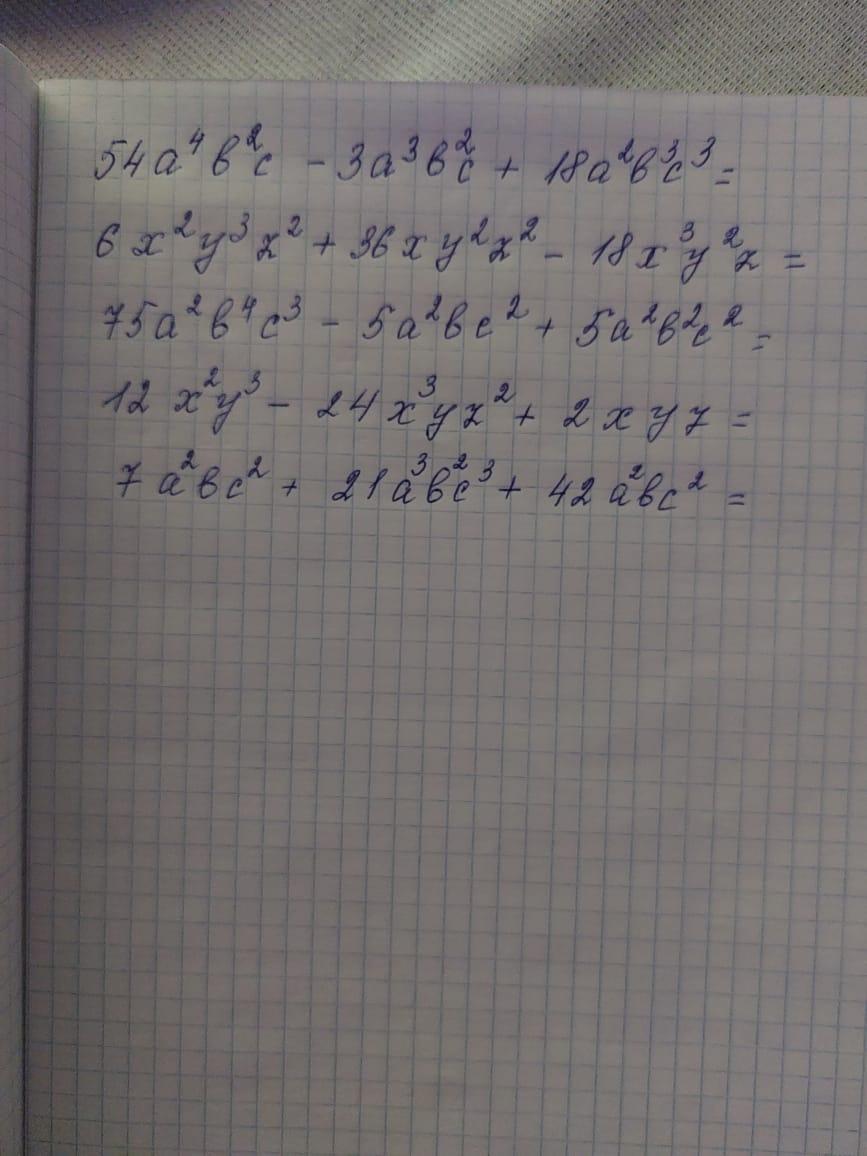 54a⁴b²c - 3a³b²c + 18a²b³c³ =
6x²y³z² + 36xy²z² - 18x³y²z =
75a²b⁴c³ - 5a²bc² + 5a²b²c² =
12x²y³ - 24x³yz² + 2xyz =
7a²bc² + 21a³b²c³ + 42a²bc² =